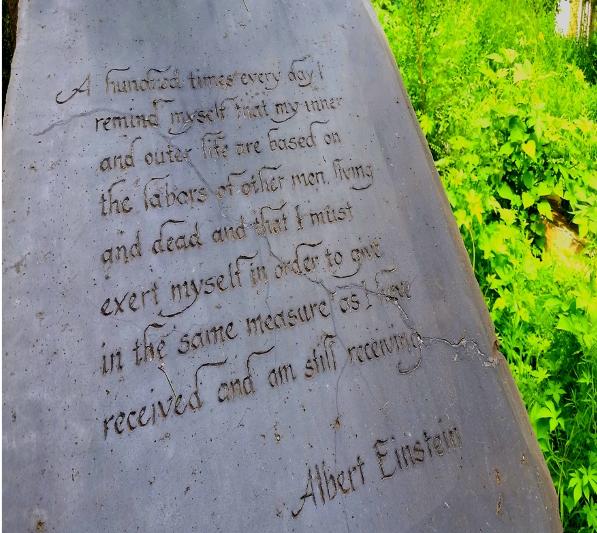 A hundred times every day I
remind myself that my inner
and outer life are based on
the labors of other men, living
and dead and that I must
exert myself in order to give
in the same measure as I have
received and am still receiving
Albert Einstein